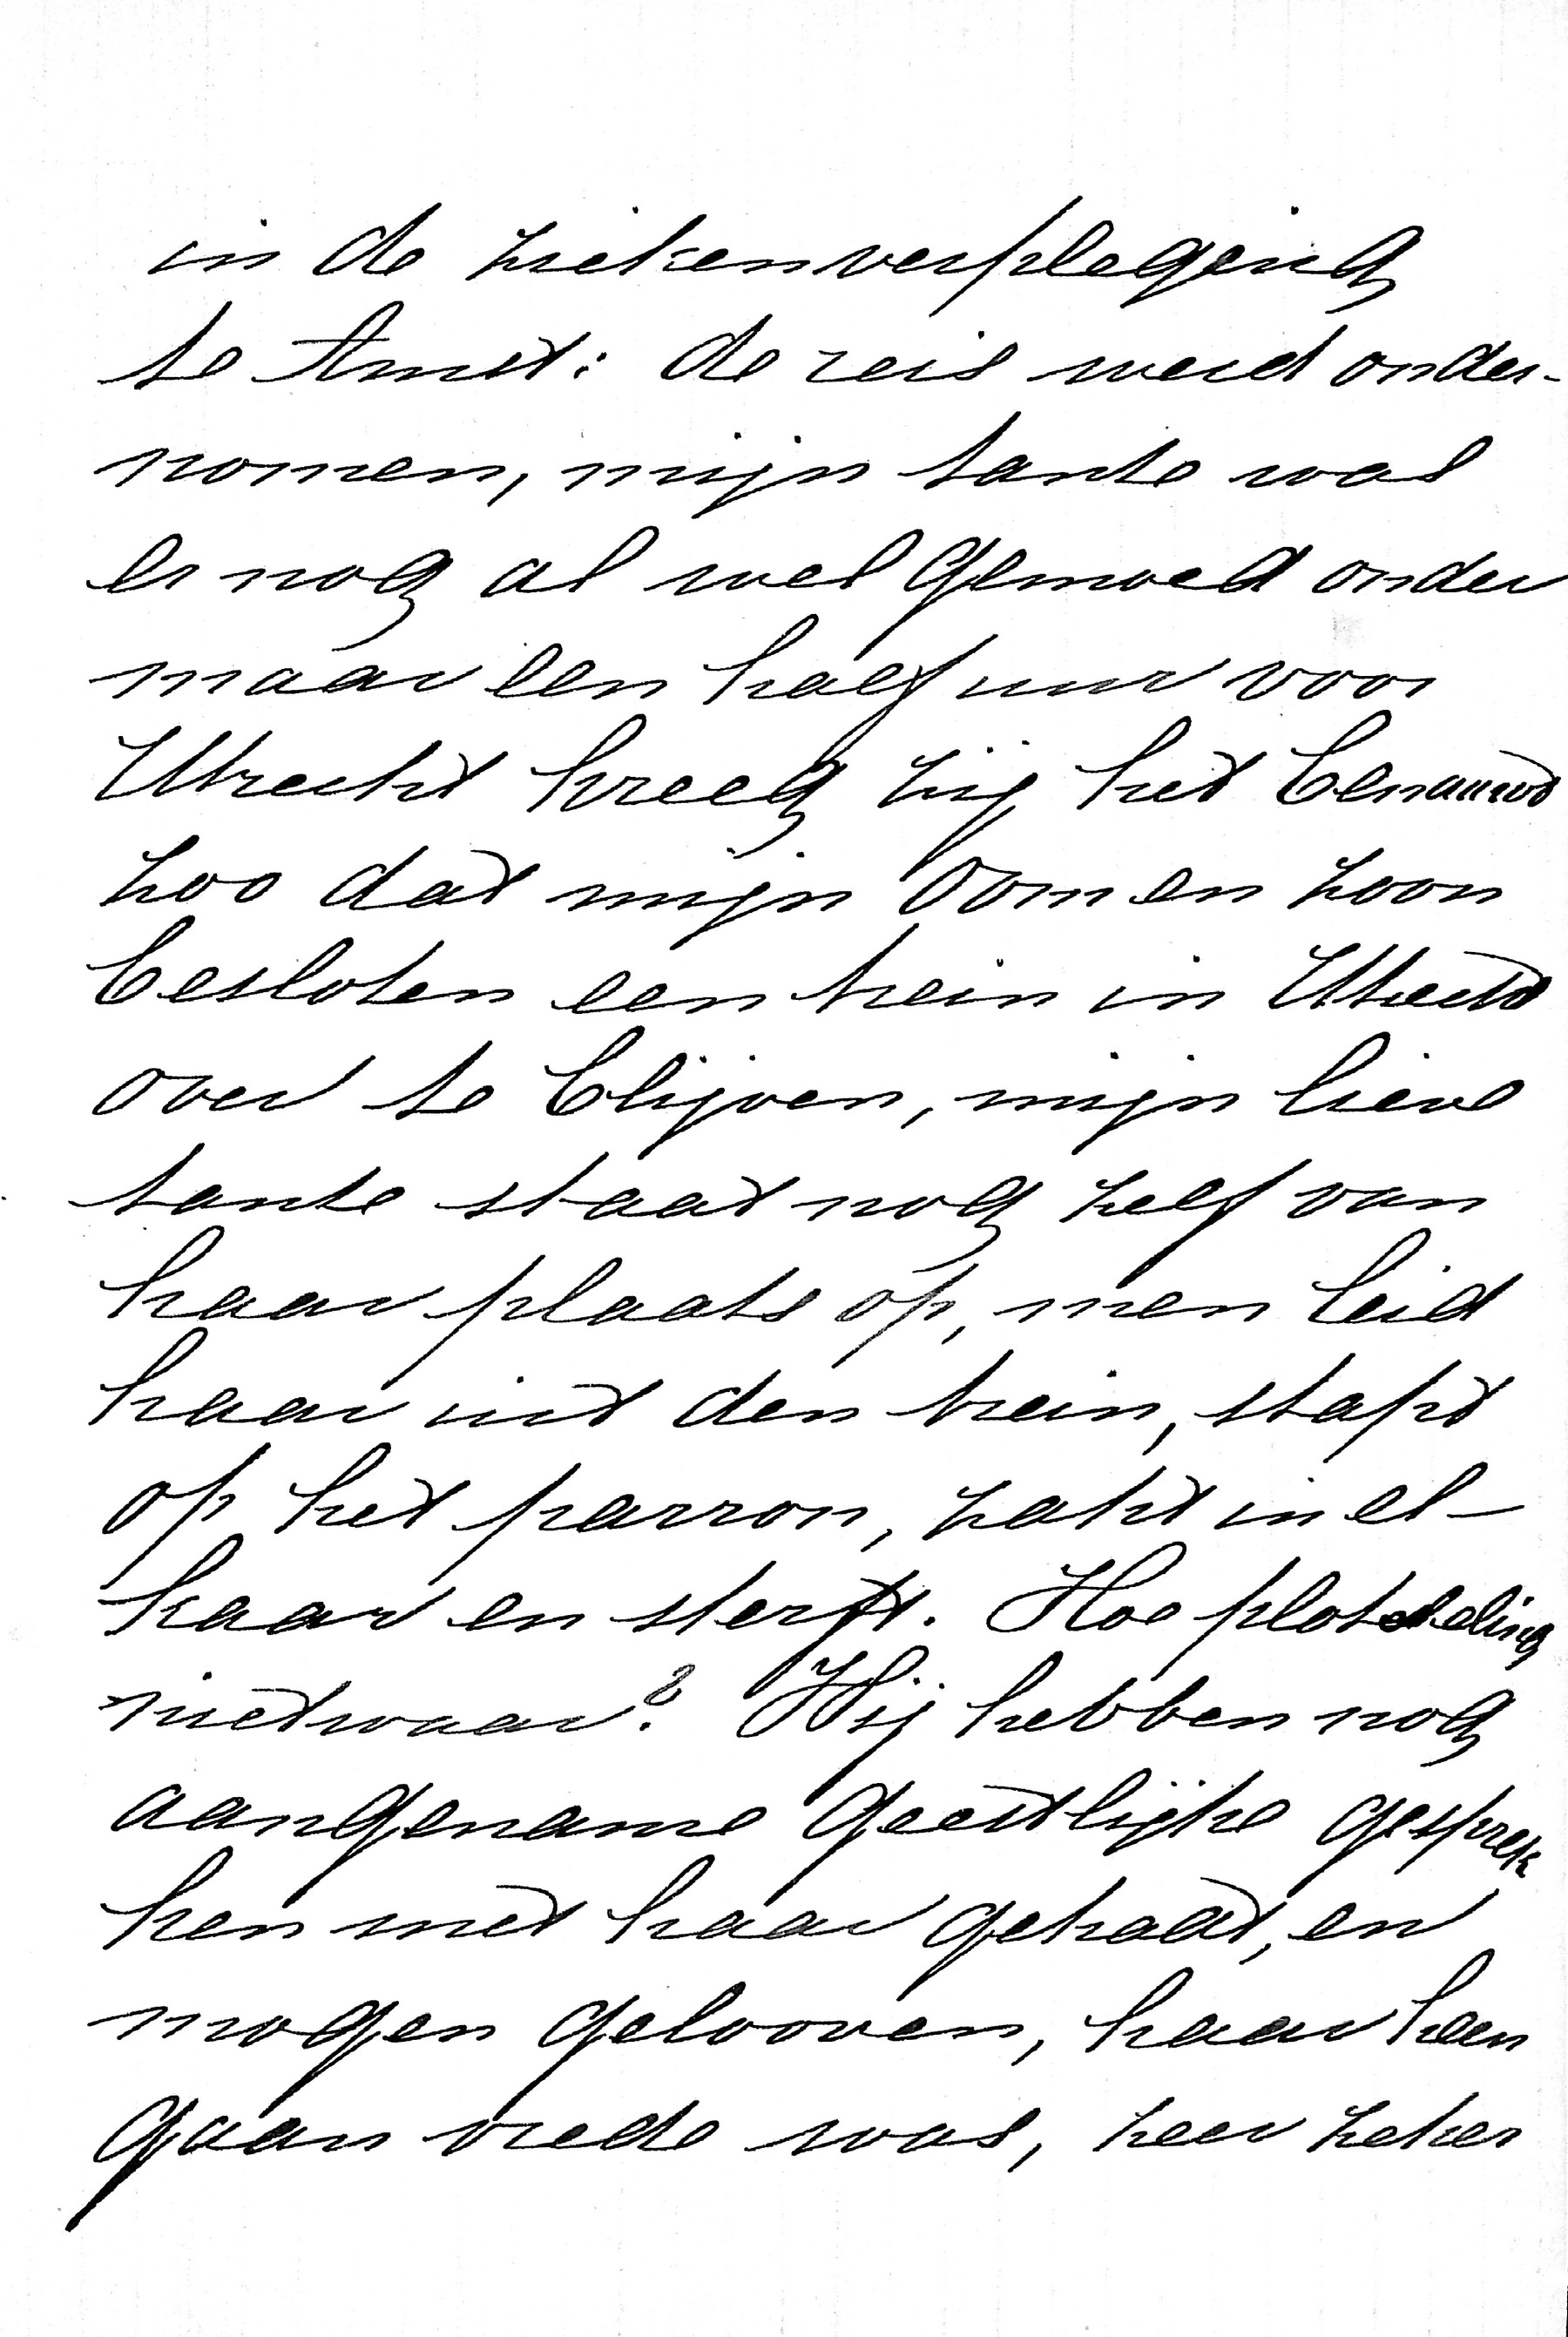 in de ziekenverpleging
te Amst: de reis werd onder-
nomen, mijn tante was
er nog al wel gemoed onder
maar een half uur voor
Utrecht kreeg zij het benauwd
zoo dat mijn Oom en zoon
besloten een trein in Utrecht
over te blijven, mijn lieve
tante staat nog zelf van
haar plaats op, men leid
haar uit den trein, stapt
op het parron, zakt in el-
kaar en sterft. Hoe plotseling
nietwaar? Wij hebben nog
aangename geestlijke gesprek
ken met haar gehad, en
mogen gelooven, haar heen
gaan vrede was, zeer zeker